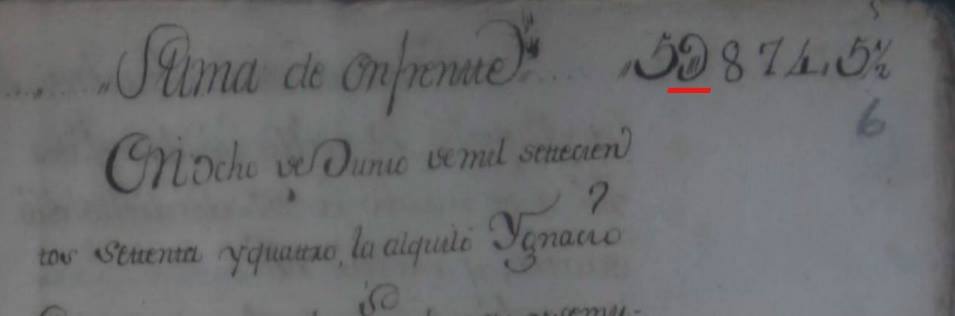 Suma de enfrente 5D874,,5½
6
En ocho de Junio de mil setecien
tos setenta y quatro, la alquiló Ygnacio